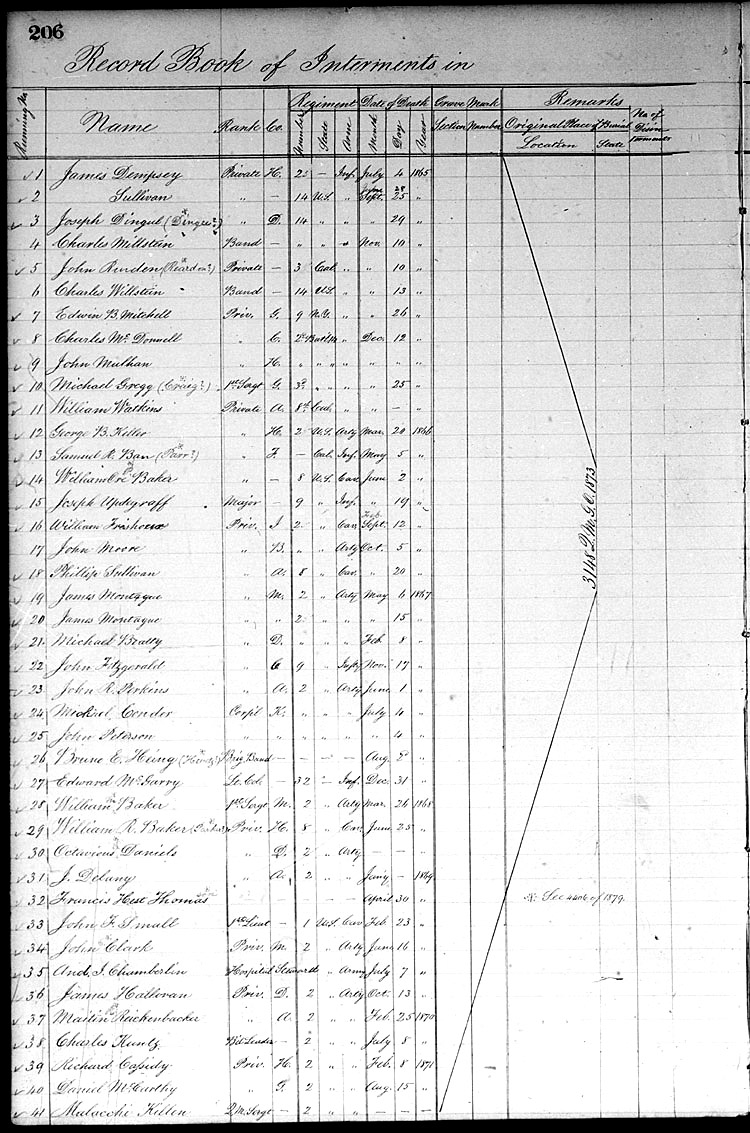 206
Record Book of Interments in
Running No. Name Rank Co. Regiment Date of Death Grave Mark Remarks
Number State Arm Month Day Year Section Number Original Place of Burial No. of Disin-terments
Location State
1 James Dempsey Private H. 2 — Inf. July 4 1865
2 Sullivan " — 14 U.S. " Sept. 25 "
3 Joseph Dingul (Dingee?) " D. 14 " " " 29 "
4 Charles Millstein Band — " " " Nov. 10 "
5 John Rurden (Reardon?) Private — 3 Cal. " " 10 "
6 Charles Willstein Band — 14 U.S. " " 13 "
7 Edwin B. Mitchell Priv. G. 9 " " 26 "
8 Charles McDonnell " C. 2 " Dec. 12 "
9 John Mulhan " H. " " " " " "
10 Michael Gregg (Craig?) 1st Sergt G. 3 " " " 25 "
11 William Watkins Private A. 8th Cal. " " — "
12 George B. Keller " H. 2 U.S. Arty Mar. 20 1866
13 Samuel R. Ban (Parr?) " F. — Cal. Inf. May 5 "
14 William Baker " — 8 U.S. Cav. June 2 "
15 Joseph Updegraff Major — 9 " Inf. " 19 "
16 William Frishour Priv. I 2 " Cav. Sept. 12 "
17 John Moore " B. " " Arty Oct. 5 "
18 Phillip Sullivan " A. 8 " Cav. " 20 "
19 James Montague " M. 2 " Arty May 6 1867
20 James Montague " " 2 " " " 15 "
21 Michael Bratty " D. " " " Feb. 8 "
22 John Fitzgerald " C 9 " Infty Nov. 17 "
23 John R. Perkins " A. 2 " Arty June 1 "
24 Michael Conder Corpl K. " " " July 4 "
25 John Peterson " " " " " " 4 "
26 Brune E. Heing Brig Band — — — Aug. 2 "
27 Edward McGarry Lt. Col. — 32 — Inf. Dec. 31 "
28 William Baker 1st Sergt M. 2 " Arty Mar. 26 1868
29 William R. Baker Priv. H. 8 " Cav. June 25 "
30 Octavious Daniels " D. 2 " Arty — — "
31 J. Delany " A. 2 " " Jany — 1869
32 Francis Hest Thomas — — April 30 " * See 4406 of 1879.
33 John F. Small 1st Lieut — 1 U.S. Cav Feb. 23 "
34 John Clark Priv. M. 2 " Arty June 16 "
35 And. J. Chamberlin Hospital Steward " Army July 7 "
36 James Hallovan Priv. D. 2 " Arty Oct. 13 "
37 Martin Reichenbacker " A 2 " " Feb. 25 1870
38 Charles Kuntz Bd Leader — 2 " " July 8 "
39 Richard Cassidy Priv. H. 2 " " Feb. 8 1871
40 Daniel McCarthy " F. 2 " " Aug. 15 "
41 Malacchi Killen Q.M. Sergt — 2 " " — — "
3148 Q.M.G.O. 1873